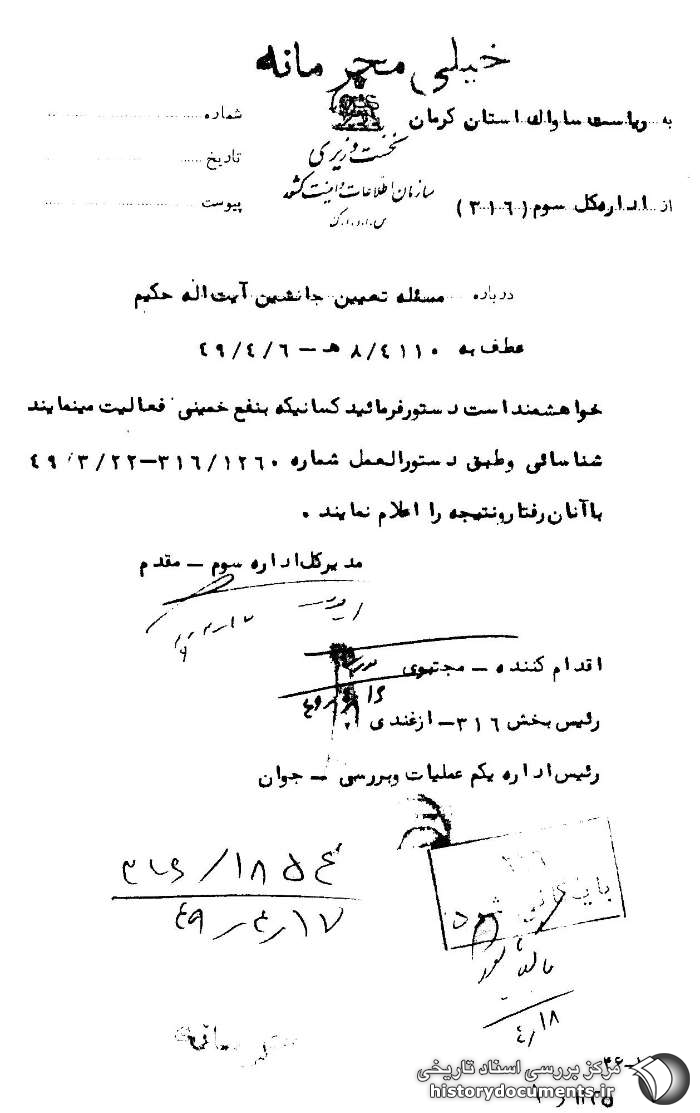 خیلی محرمانه
به ریاست ساواک استان کرمان
شماره
نخست وزیری
تاریخ
سازمان اطلاعات و امنیت کشور
س.ا.و.ا.ک
از اداره‌کل سوم (۳۱۶)
پیوست
درباره مسئله تعیین جانشین آیت‌اله حکیم
عطف به ۸/۴۱۱۰ هـ – ۴۹/۴/۶
خواهشمند است دستور فرمائید کسانیکه بنفع خمینی فعالیت مینمایند
شناسائی و طبق دستورالعمل شماره ۳۱۶/۱۲۶۰–۴۹/۳/۲۲
با آنان رفتار و نتیجه را اعلام نمایند .
مدیرکل اداره سوم – مقدم
اقدام کننده – مجتبوی
رئیس بخش ۳۱۶ – ازغندی
رئیس اداره یکم عملیات و بررسی – جوان
۳۱۶/۱۸۵۴
۴۹٫۴٫۱۷
۳۱۶
بایگانی شود
۴٫۱۸
مرکز بررسی اسناد تاریخی
historydocuments.ir